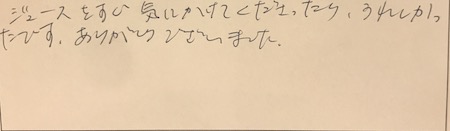 ジュースをすぐ気にかけてくださったり、うれしかっ
たです。ありがとうございました。